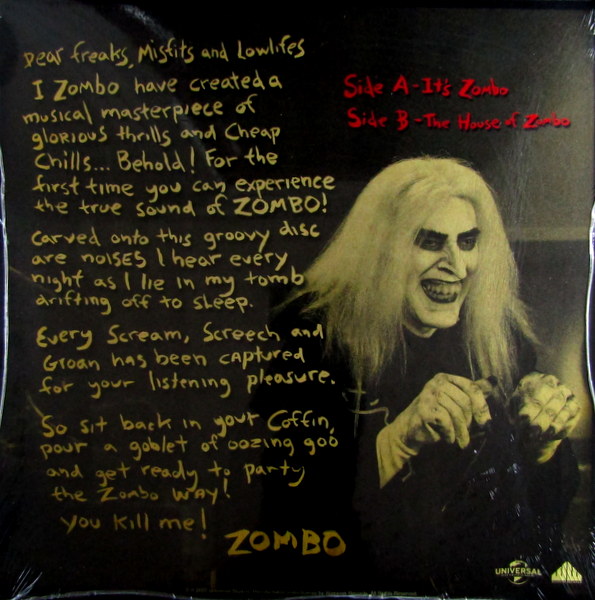 Dear freaks, Misfits and Lowlifes
I Zombo have created a
musical masterpiece of
glorious thrills and Cheap
Chills... Behold! For the
first time you can experience
the true sound of ZOMBO!
Carved onto this groovy disc
are noises I hear every
night as I lie in my tomb
drifting off to sleep.
Every Scream, Screech and
Groan has been captured
for your listening pleasure.
So sit back in your Coffin,
pour a goblet of oozing goo
and get ready to party
the Zombo way!
You kill me!
ZOMBO
Side A - It's Zombo
Side B - The House of Zombo
UNIVERSAL